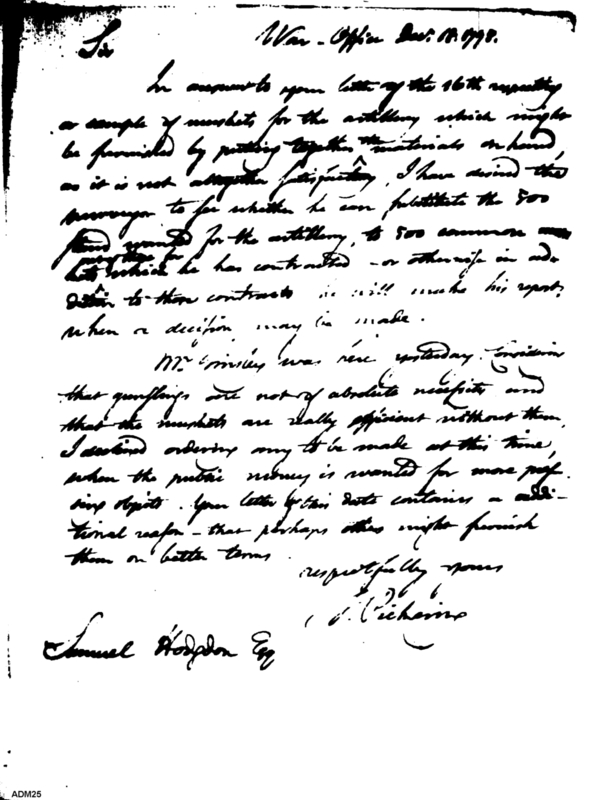 War-Office Decr. 18. 1795.
Sir
In answer to your letter of the 16th respecting
a sample of muskets for the artillery which might
be furnished by putting together the materials on hand,
as it is not altogether satisfactory, I have desired the
purveyor to see whether he can substitute the 500
stand wanted for the artillery, to 500 common mus
kets which he has contracted for or otherwise in ad-
dition to those contracts he will make his report,
when a decision may be made.
Mr. was here yesterday. Considering
that gunslings are not of absolute necessity and
that the muskets are really efficient without them,
I declined ordering any to be made at this time,
when the public money is wanted for more pres
sing objects. Your letter of this date contains a addi-
tional reason - that perhaps others might furnish
them on better terms
respectfully yours
T. Pickering
Samuel Hodgdon Esq
ADM25